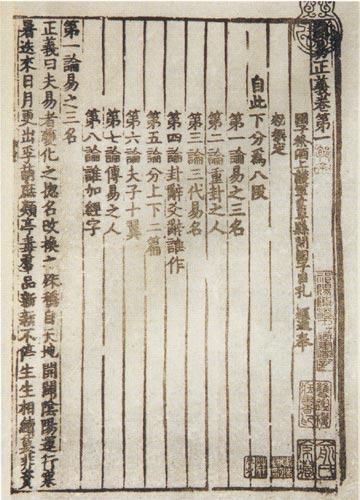 周易正義卷第一
國子祭酒上護軍曲阜縣開國子臣孔 穎達奉
勑撰定
自此下分為八段
第一論易之三名
第二論重卦之人
第三論三代易名
第四論卦辭爻辭誰作
第五論分上下二篇
第六論夫子十翼
第七論傳易之人
第八論誰加經字
第一論易之三名
正義曰夫易者變化之揔名改換之殊稱自天地開闢陰陽運行寒
暑迭來日月更出孚萌庶類亭毒羣品新新不停生生相續莫非資